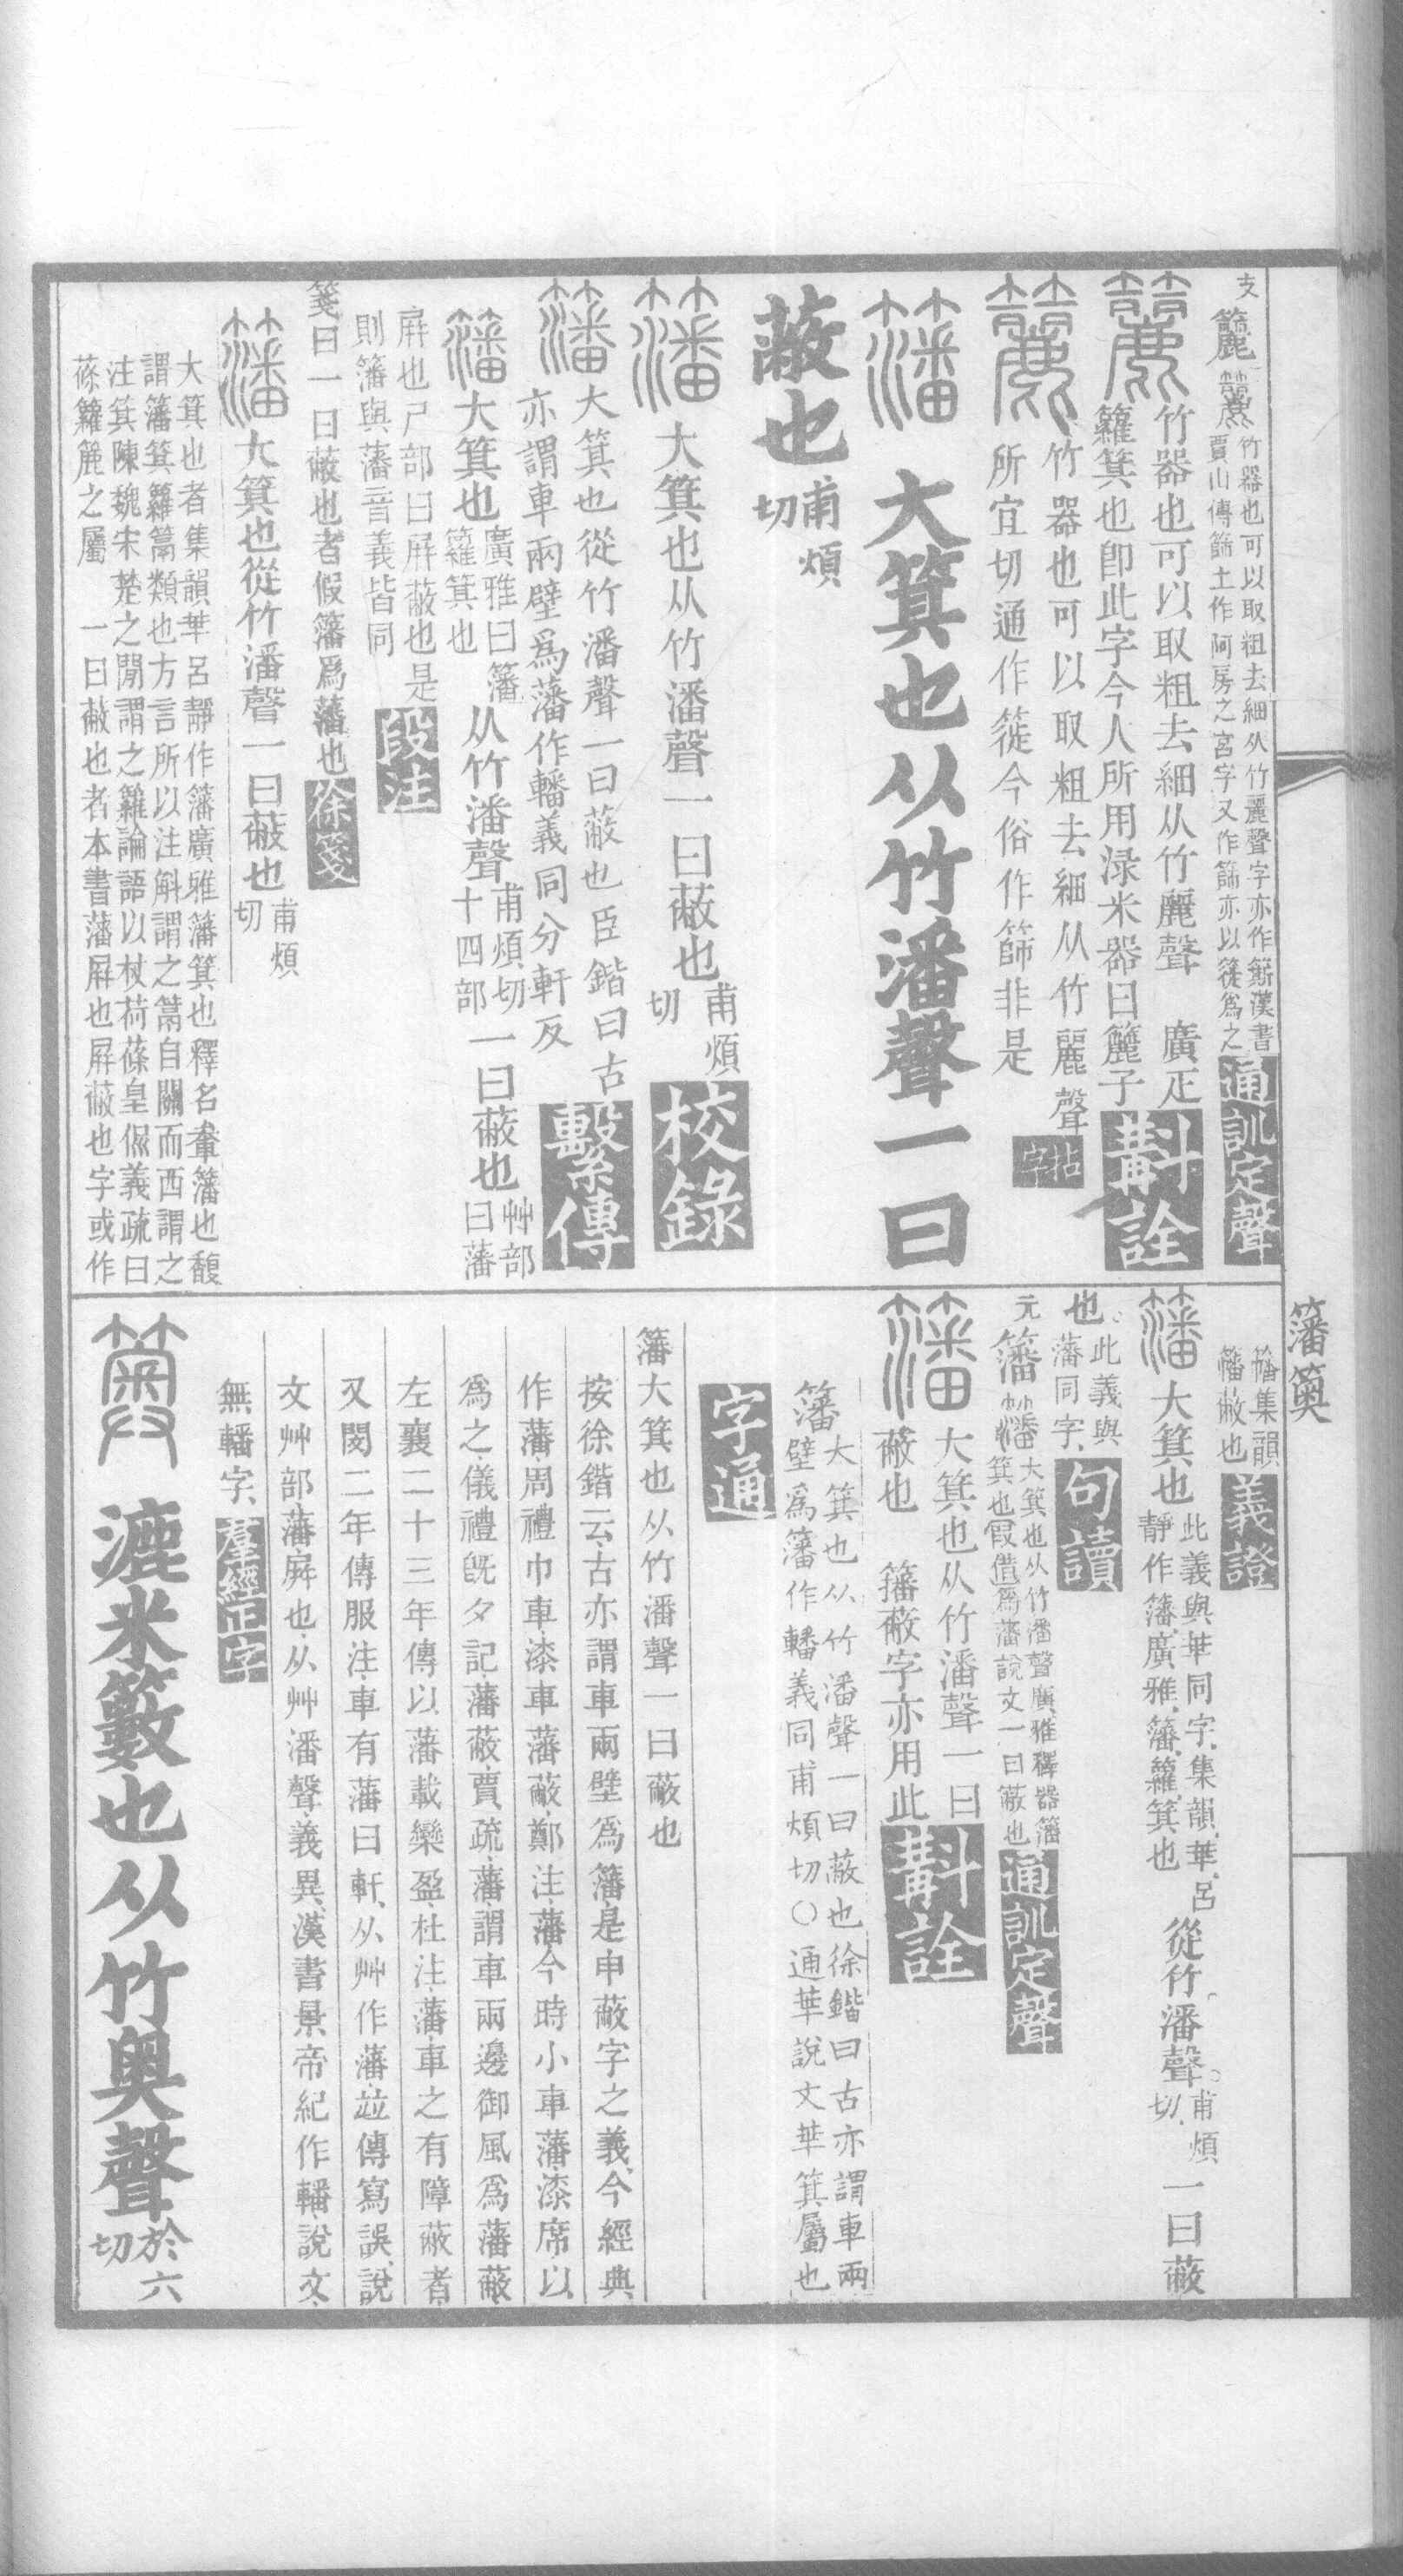 支
簏
竹器也可以取粗去細从竹麗聲字亦作簛漢書
賈山傳篩土作阿房之宮字又作篩亦以簁爲之
通訓定聲
竹器也可以取粗去細从竹麗聲　廣疋
籮箕也卽此字今人所用淥米器曰簏子
斠詮
竹器也可以取粗去細从竹麗聲
所宜切通作簁今俗作篩非是
拈字
籓　大箕也从竹潘聲一曰
蔽也
甫煩
切
籓　大箕也从竹潘聲一曰蔽也
甫煩
切
校錄
籓　大箕也從竹潘聲一曰蔽也臣鍇曰古
亦謂車兩壁爲藩作轓義同分軒反
繫傳
籓　大箕也
廣雅曰籓
籮箕也
从竹潘聲
甫煩切
十四部
一曰蔽也
艸部
曰藩
屛也尸部曰屛蔽也是
則籓與藩音義皆同
段注
箋曰一曰蔽也者假籓爲藩也
徐箋
籓　大箕也從竹潘聲一曰蔽也
甫煩
切
大箕也者集韻䈏呂靜作籓廣雅籓箕也釋名軬藩也馥
謂籓箕籮䈪類也方言所以注斛謂之䈪自關而西謂之
注箕陳魏宋楚之閒謂之籮論語以杖荷蓧皇侃義疏曰
蓧籮簏之屬　一曰蔽也者本書藩屛也屛蔽也字或作
籓䉛
幡集韻
幡蔽也
義證
籓　大箕也
此義與䈏同字集韻䈏呂
靜作籓廣雅籓籮箕也
從竹潘聲
甫煩
切
一曰蔽
也
此義與
藩同字
句讀
元
籓
大箕也从竹潘聲廣雅釋器籓
箕也假借爲藩說文一曰蔽也
通訓定聲
籓　大箕也从竹潘聲一曰
蔽也　籓蔽字亦用此
斠詮
籓
大箕也从竹潘聲一曰蔽也徐鍇曰古亦謂車兩
壁爲籓作轓義同甫煩切○通䈏說文䈏箕屬也
字通
籓大箕也从竹潘聲一曰蔽也
按徐鍇云古亦謂車兩壁爲籓是申蔽字之義今經典
作藩周禮巾車漆車藩蔽鄭注藩今時小車藩漆席以
爲之儀禮旣夕記藩蔽賈疏藩謂車兩邊御風爲藩蔽
左襄二十三年傳以藩載欒盈杜注藩車之有障蔽者
又閔二年傳服注車有藩曰軒从艸作藩竝傳寫誤說
文艸部藩屛也从艸潘聲義異漢書景帝紀作轓說文
無轓字
羣經正字
䉛　漉米籔也从竹奧聲
於六
切